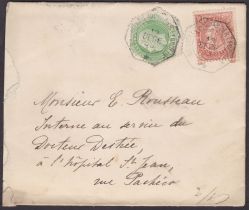 Monsieur E. Rousseau
Interne au service du
Docteur Destrée,
à l'hôpital St Jean,
rue Pachéco